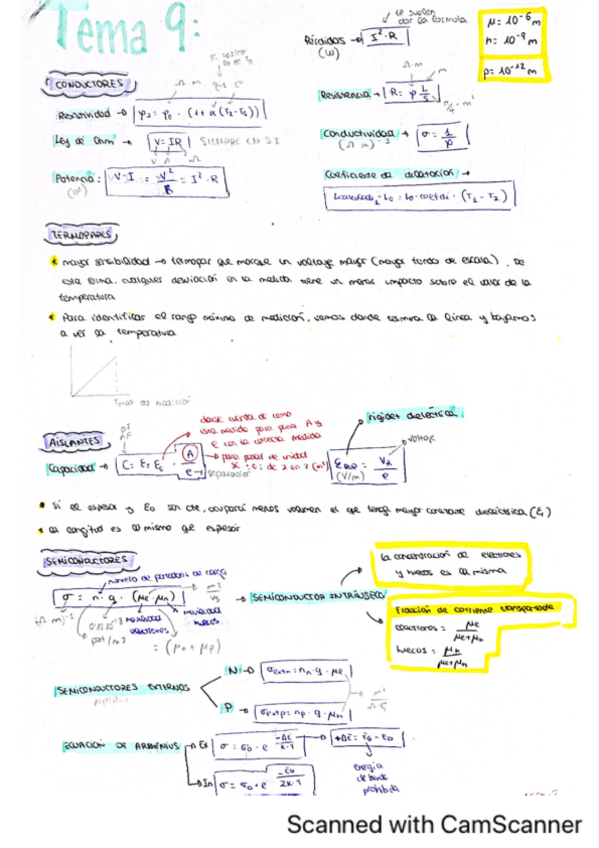 Tema 9:
Pérdidas → I²·R
(W)
te suelen
dar la fórmula
μ = 10⁻⁶ m
n = 10⁻⁹ m
p = 10⁻¹² m
CONDUCTORES
Resistividad → ρ₂ = ρ₀ · (1 + α (T₂ - T₀))
Ω·m
Ley de Ohm → V = IR SIEMPRE EN SI
V A Ω
Potencia: V·I = V²/R = I²·R
(W)
Resistencia → R = ρ L/S
Ω·m
m
Conductividad → σ = 1/ρ
Coeficiente de dilatación →
TERMOPARES
mayor sensibilidad → termopar que marque un voltaje mayor (mayor fondo de escala). De
esta forma, cualquier desviación en la medida tiene un menos impacto sobre el valor de la
temperatura
Para identificar el rango máximo de medición, vemos donde termina la línea y bajamos
a ver la temperatura
AISLANTES
Capacidad → C = εr ε₀ · A/e → separación
darse cuenta de como
esta medido para pasar A y
e con la correcta medida
para pasar de unidad
rigidez dieléctrica
voltaje
= V/e
(V/m)
Si el espesor y E₀ son cte, ocupará menos volumen el que tenga mayor constante dieléctrica (εr)
La longitud es lo mismo que espesor
SEMICONDUCTORES
número de portadores de carga
σ = n · q · (μe · μh)
movilidad
electrones
movilidad
huecos
= (μn + μp)
→ SEMICONDUCTOR INTRÍNSECO
La concentración de electrones
y huecos es la misma
Fracción de corriente transportada
electrones = μe/(μe+μh)
huecos = μh/(μe+μh)
SEMICONDUCTORES EXTRINSECOS
N → σextn = nn · q · μe
P → σextp = np · q · μh
ECUACIÓN DE ARRHENIUS
Ex σ = σ₀ · e^(-ΔE/k·T)
In σ = σ₀ · e^(-Eg/2k·T)
energía
de banda
prohibida
Scanned with CamScanner